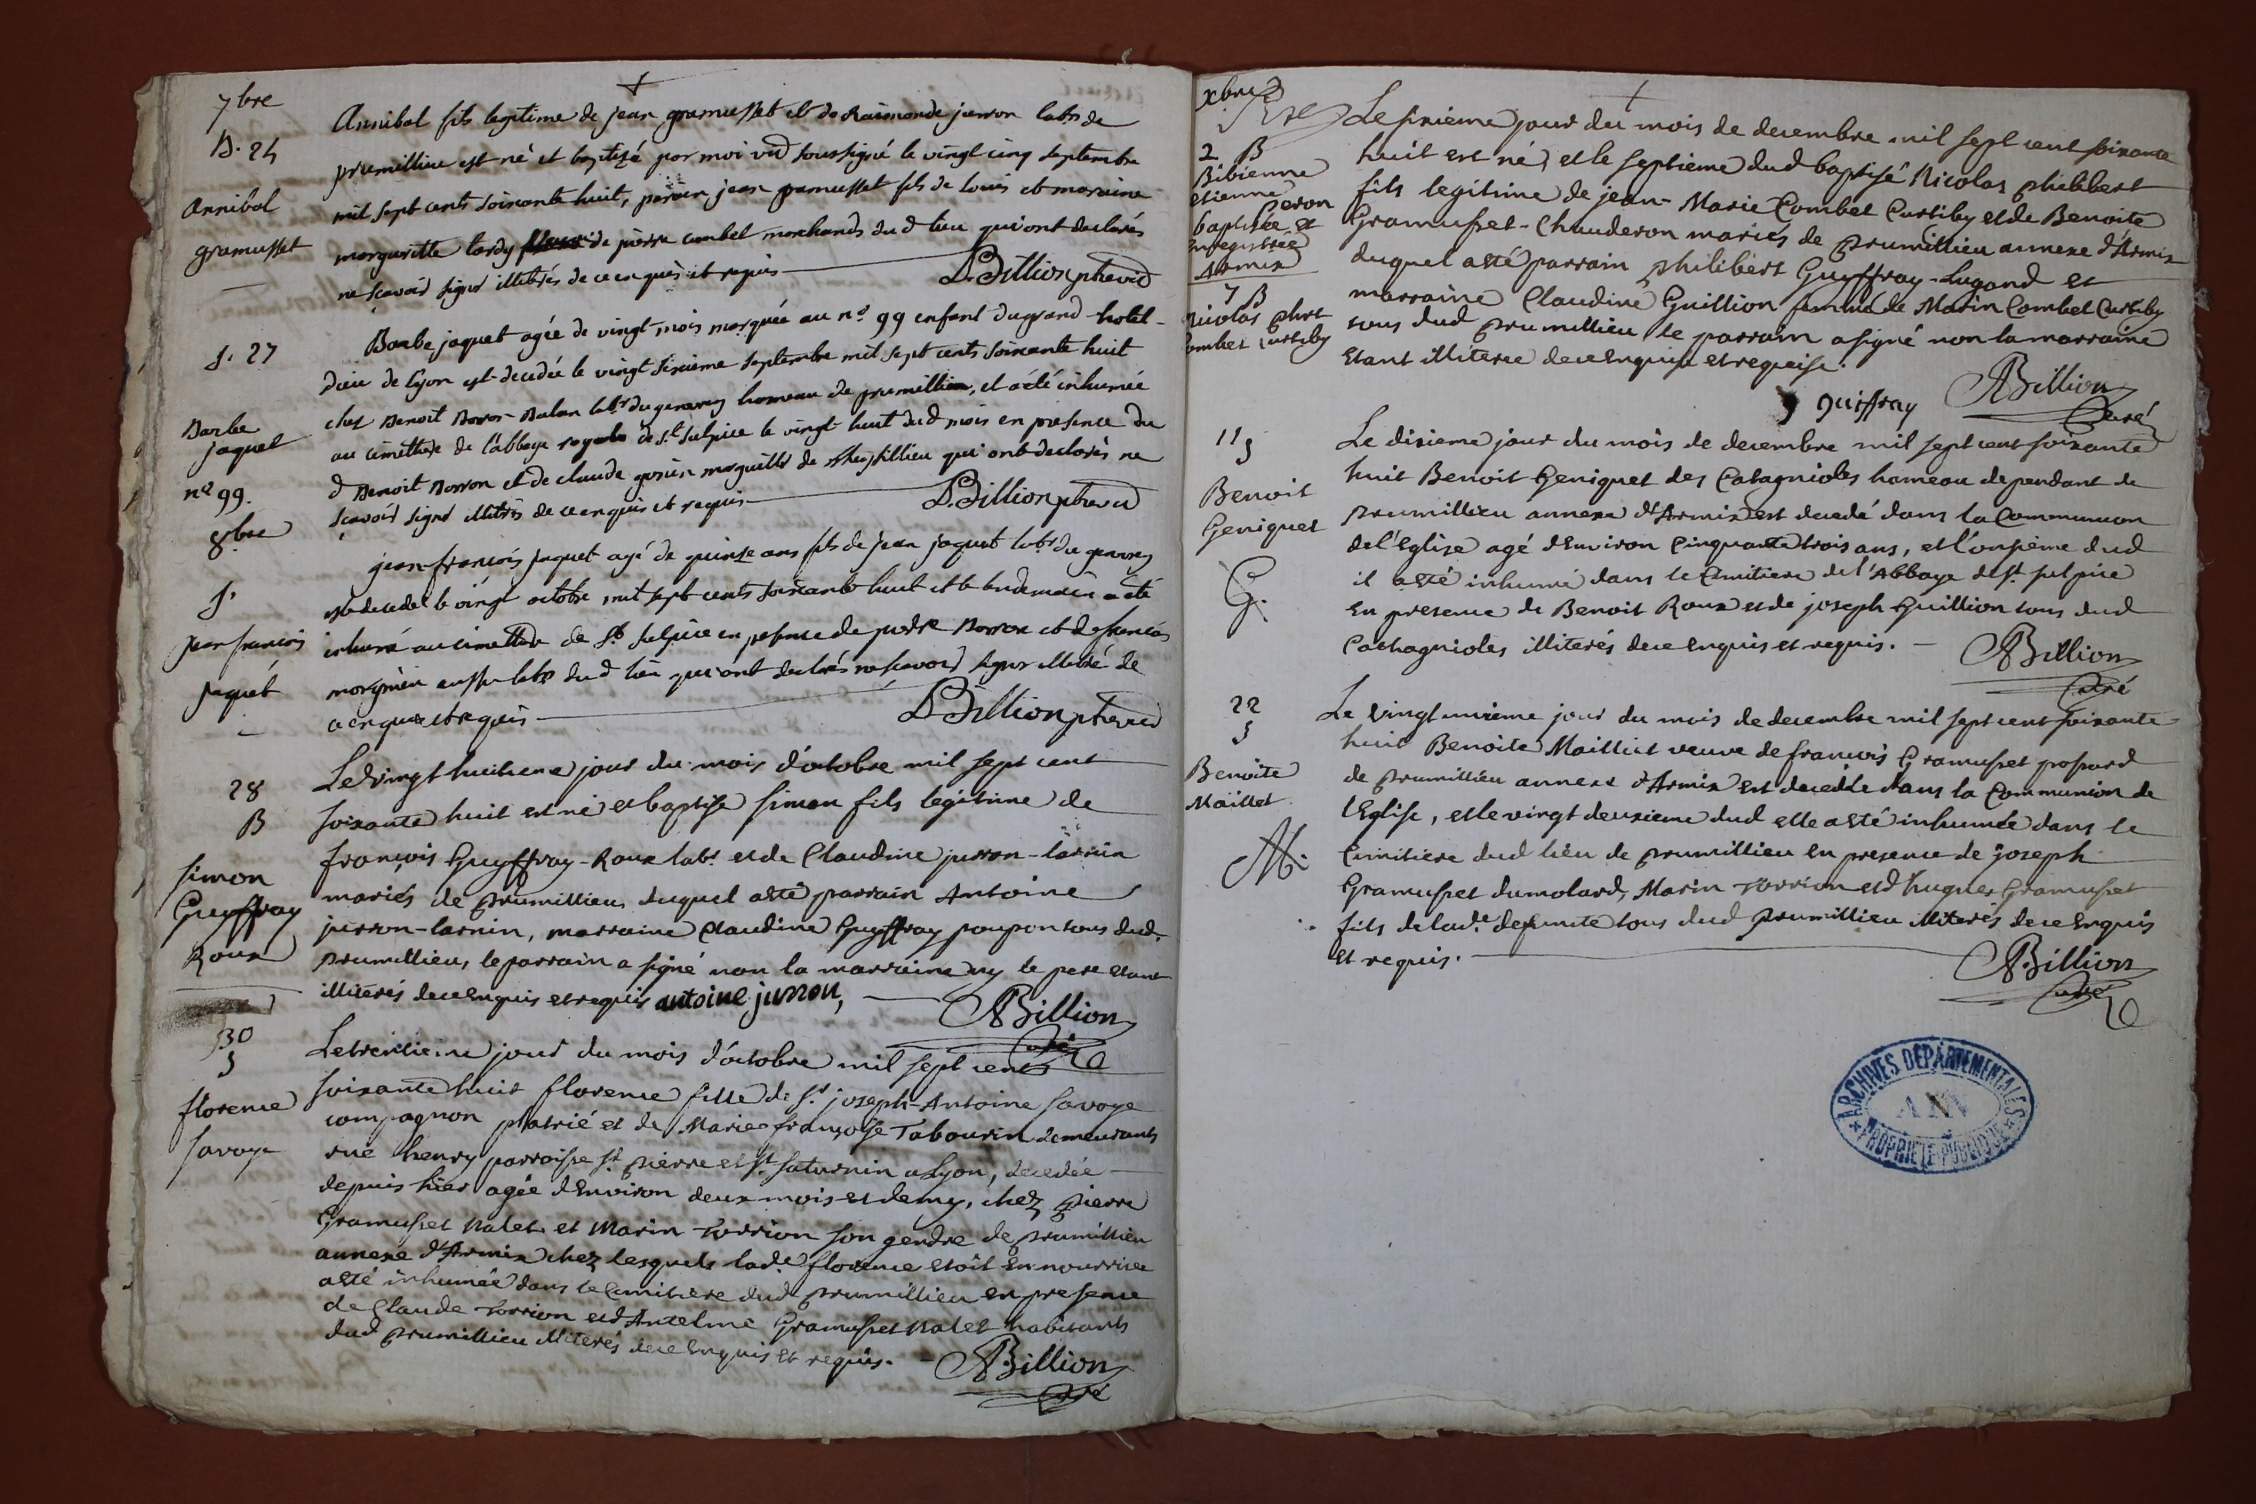 7bre
B. 25
Annibal
gramusset
Annibal fils legitime de jean gramusset et de Raimonde juron labrs de
prumillieu est né et baptisé par moi vic soussigné le vingt cinq septembre
mil sept cents soixante huit, parain jean gramusset fils de louis et maraine
margueritte tardy de pierre combet marchands dud lieu qui ont declarés
ne scavoir signer illitérés de ce enquis et requis
D. Billion ptre vic
S. 27
Barbe
jaquet
no 99.
Barbe jaquet agée de vingt mois marquée au no. 99 enfant du grand hotel
dieu de lyon est decedée le vingt sixieme septembre mil sept cents soixante huit
chez Benoit Borron Balan labr du genevrey hameau de prumillieu, et a été inhumée
au cimettiere de l'abbaye royale de St. Sulpice le vingt huit dud mois en presence du
d Benoit Borron et de claude marguillier de qui ont declarés ne
scavoir signer illitérés de ce enquis et requis
D. Billion ptre vic
8bre
S.
jean francois
jaquet
jean-francois jaquet agé de quinze ans fils de jean jaquet labr du genevrey
est decedé le vingt octobre mil sept cents soixante huit et le lendemain a été
inhumé au cimettiere de St Sulpice en presence de pierre Borron et de francois
aussy labrs dud lieu qui ont declarés ne scavoir signer illitéré de
ce enquis et requis
D. Billion ptre vic
28
B
Simon
Guyffray
Roux
Le vingt huitieme jour du mois d'octobre mil sept cent
soixante huit est né et baptisé simon fils légitime de
françois Guyffray-Roux labr. et de Claudine juron-lasnin
mariés de prumillieu duquel a esté parrain Antoine
jurron-lasnin, marraine Claudine Guyffray poupon tous dud.
prumillieu, le parrain a signé non la marraine ny le pere etant
illiterés de ce enquis et requis antoine jurron,
ABillion
Curé
30
S
florence
savoye
Le trentieme jour du mois d'octobre mil sept cents
soixante huit florence fille de Sr. joseph-Antoine Savoye
compagnon platrié et de Marie françoise Tabourin demeurants
rue henry parroisse St pierre et St. Saturnin a Lyon, decedée
depuis hier agée d'Environ deux mois et demy, chez pierre
Gramusset Nalet et Marin Torrion son gendre de prumillieu
annexe d'Armix chez lesquels lade. florence etoit en nourrice
a esté inhumée dans le Cimitiere dud prumillieu en presence
de Claude Torrion et d'Antelme Gramusset Nalet habitants
dud prumillieu illiterés de ce enquis et requis.
ABillion
Curé
xbre
2 B
Bibienne
etienne
Peron
baptisée et
enregistrée
Armix
7 B
Nicolas phrt
Combet Curtiby
Le sixieme jour du mois de decembre mil sept cent soixante
huit est né, et le septieme dud baptisé Nicolas philibert
fils legitime de jean-Marie Combet Curtiby et de Benoite
Gramusset-Chauderon mariés de prumillieu annexe d'Armix
duquel a esté parrain philibert Guyffray-Lugand et
marraine Claudine Guillion femme de Marin Combet Curtiby
tous dud prumillieu le parrain a signé non la marraine
etant illiteree de ce Enquise et requise.
guiffray
ABillion
Curé
11
S
Benoit
Geniquet
G.
Le dixieme jour du mois de decembre mil sept cent soixante
huit Benoit Geniquet des Catagnioles hameau dependant de
prumillieu annexe d'Armix est decedé dans la Communion
de l'Eglise agé d'Environ Cinquante trois ans, et l'onzième dud
il a esté inhumé dans le Cimitiere de l'Abbaye de St. sulpice
en presence de Benoit Roux et de joseph Guillion tous dud
Cathagnioles illiterés de ce enquis et requis.
ABillion
Curé
22
S
Benoite
Maillet
M.
Le vingt unieme jour du mois de decembre mil sept cent soixante
huit Benoite Maillet veuve de francois Gramusset possard
de prumillieu annexe d'Armix est decedée dans la Communion de
l'Eglise, et le vingt deuxieme dud elle a esté inhumée dans le
Cimitiere dud lieu de prumillieu en presence de joseph
Gramusset dumolard, Marin Torrion et d'hugues Gramusset
fils de lade. defunte tous dud prumillieu illiterés de ce enquis
et requis.
ABillion
Curé
ARCHIVES DEPARTEMENTALES
AIN
PROPRIETE PUBLIQUE